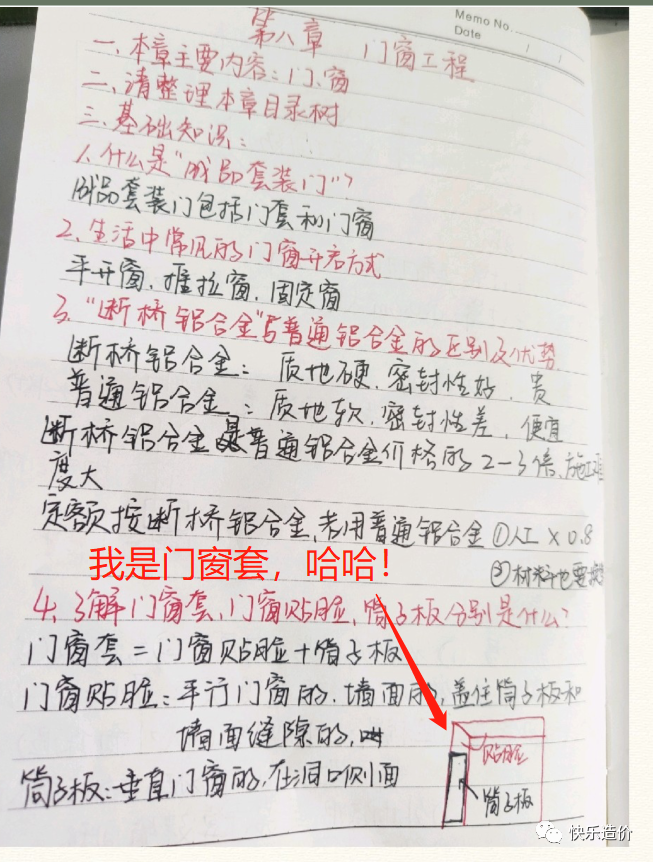 Memo No.
Date / /
第八章 门窗工程
一、本章主要内容：门、窗
二、请整理本章目录树
三、基础知识：
1、什么是“成品套装门”？
成品套装门包括门套和门窗
2、生活中常见的门窗开启方式
平开窗、推拉窗、固定窗
3、“断桥铝合金”与普通铝合金的区别及优势
断桥铝合金：质地硬、密封性好、贵
普通铝合金：质地软、密封性差、便宜
断桥铝合金是普通铝合金价格的2-3倍、施工难
度大
定额按断桥铝合金，若用普通铝合金①人工×0.8
②材料也要换
我是门窗套，哈哈！
4、了解门窗套、门窗贴脸、筒子板分别是什么？
门窗套=门窗贴脸+筒子板
门窗贴脸：平行门窗的、墙面的，盖住筒子板和
墙面缝隙的，叫
筒子板：垂直门窗的，在洞口侧面
贴脸
筒子板
快乐造价